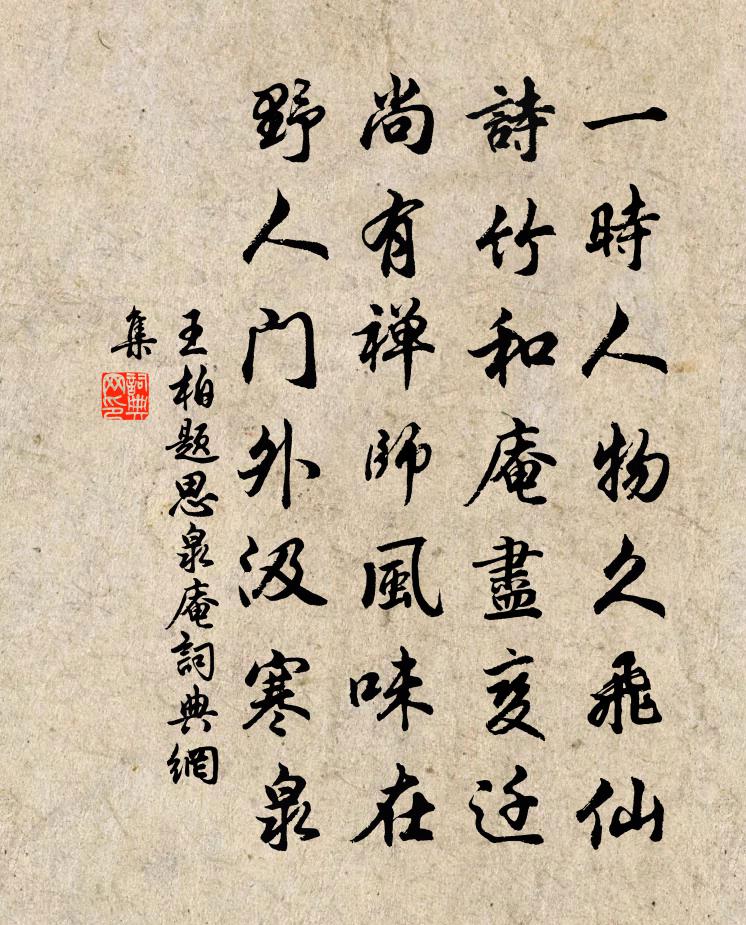 一時人物久飛仙
詩竹和庵盡变迁
尚有禅師風味在
野人门外汲寒泉
王柏题思泉庵詞典網
集
詞典
网印